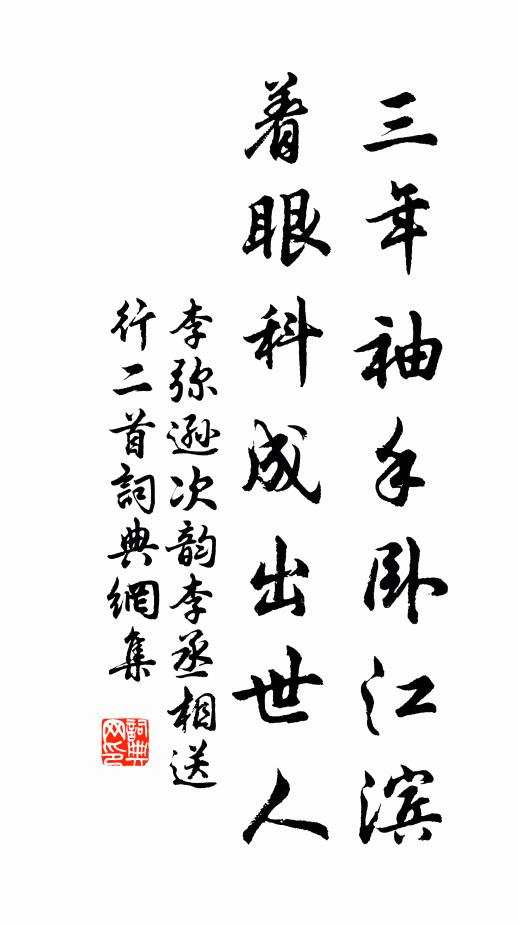 三年袖手卧江滨
着眼科成出世人
李弥逊次韵李丞相送
行二首詞典網集
詞典網印